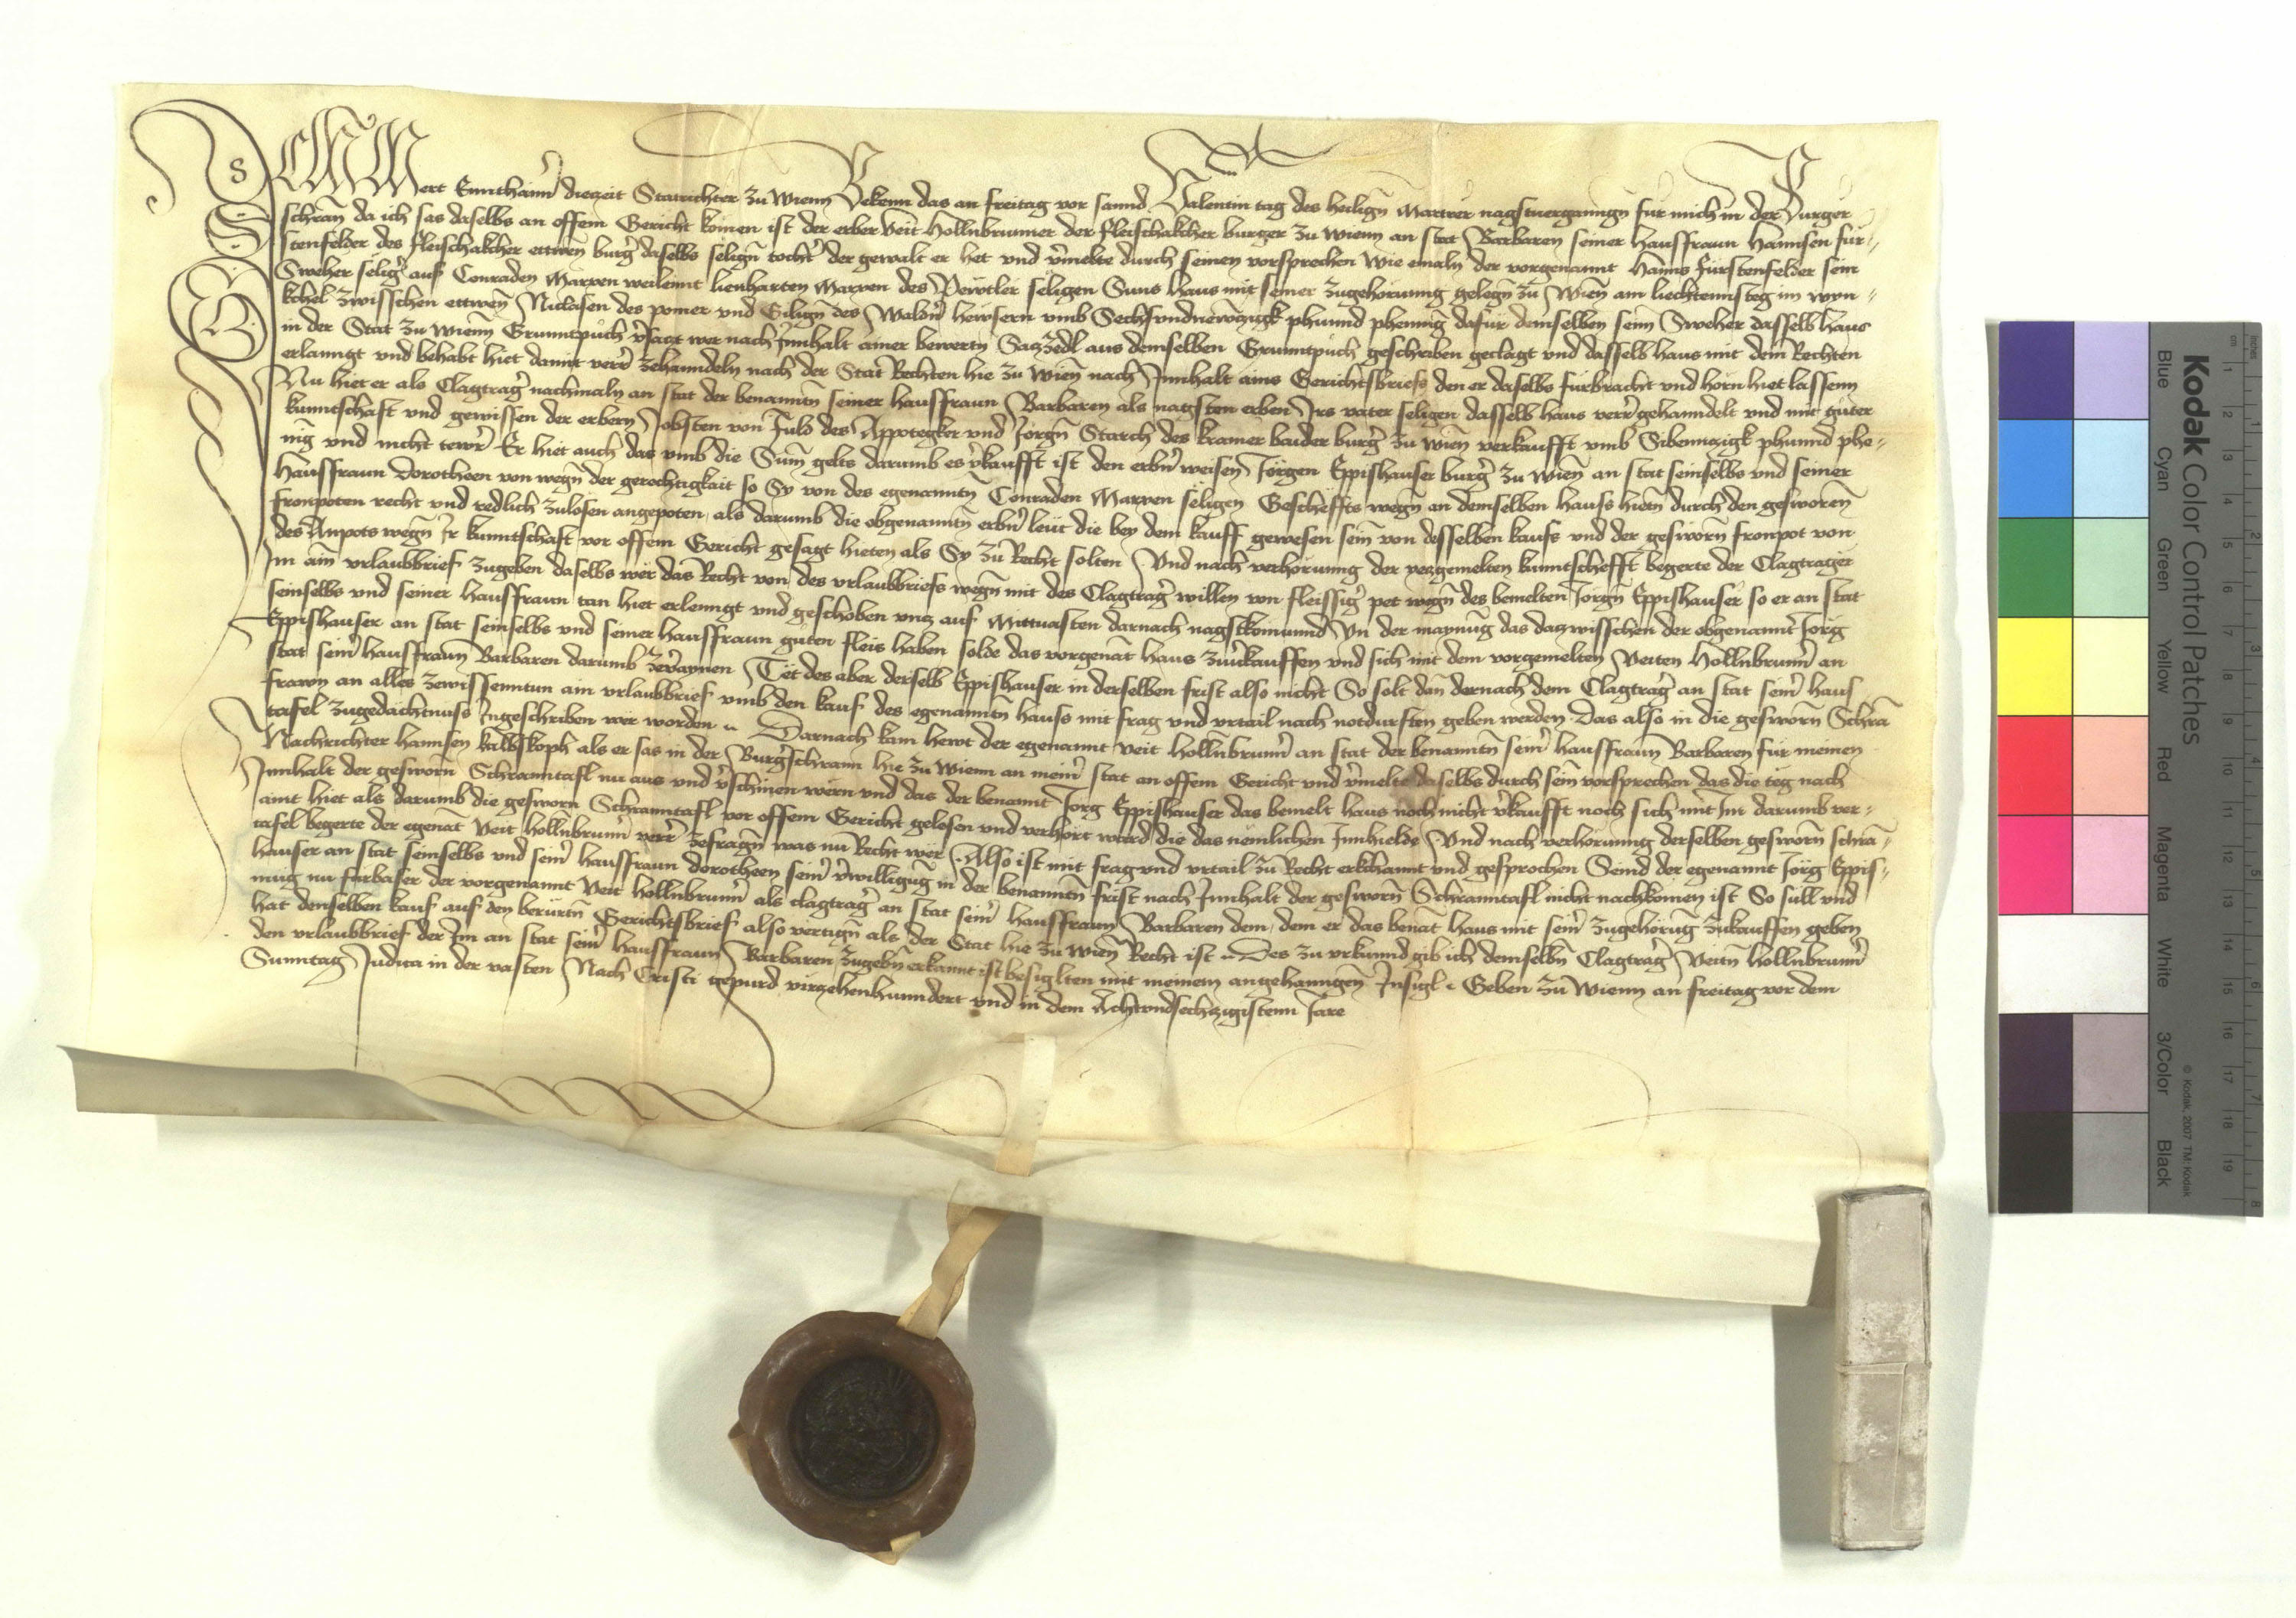 Ich Mert Ennthaimer diezeit Statrichter zu Wienn Bekenn das an freitag vor sannd Valentin tag des heilign Martrer nagstuergangn fur mich in der Burger
schran̄ da ich sas daselbs an offem Gericht komen ist der erber Veit Hollnbrunner der fleischakcher burger zu Wienn an stat Barbaren seiner hausfraun Hannsen fur-
stenfelder des fleischakcher ettwen burgʼ daselbs seligñ tochtʼ der gewalt er het vnd vʼmelte durch seinen vorsprechen wie emaln der vorgenannt Hanns Fürstenfelder sein
Sweher seligʼ auf Conraden Marren weilennt lienharten Marren des Pewtler seligen Suns haus mit seiner zugehorunng gelegñ zu Wienn am liechtennsteg im wyn-
kchel zwisschen ettwen Niclasen des pomer vnd Gilign des Waldnʼ hewsern vmb Sechsvndnewnzigk phunnd phennig dafür demselben seim Sweher dasselb haus
in der Stat zu Wienn Grunntpuch vʼsatzt wer nach Innhalt ainer bewertn Satzzedl aus demselben Grunntpuch geschriben geclagt vnd dasselb haus mit dem Rechten
erlanngt vnd behabt hiet damit verrʼ zehanndeln nach der Stat Rechten hie zu Wienn nach Innhalt ains Gerichtsbriefs den er daselbs furbracht vnd horn hiet lassenn
Nu hiet er als Clagtragʼ nachmaln an stat der benanntn seiner hausfraun Barbaren als nagsten erben Irs vater seligen dasselb haus verrʼ gehanndelt vnd mit guter
kunntschaft vnd gewissen der erbern Jobsten von Fuld des Appotegker vnd Jorgñ Starch des kramer baider burgʼ zu Wienn verkaufft vmb Sibennzigk phunnd phe-
nig vnd nicht tewrʼ Er hiet auch das vmb die Sum̄ gelts darumb es vʼkaufft ist den erbnʼ weisen Jörgen Eppishauser burgʼ zu Wienn an stat seinselbs vnd seiner
Hausfraun Dorotheen von wegñ der gerechtigkait so Sy von des egenanntñ Conraden Marren seligen Geschefts wegñ an demselben hauss hietñ durch den gesworen
fronpoten recht vnd redlich zulosen angepoten als darumb die obgenanntñ erbnʼ leut die bey dem kauff gewesen sein von desselben kaufs vnd der gesworn fronpot von
des Anpots wegñ Ir kunntschaft vor offem Gericht gesagt hieten als Sy zu Recht solten Vnd nach verhörunng der yezgemelten kunntschefft begerte der Clagtrager
Im ain vrlaubbrief zugeben daselbs wer das Recht von des vrlaubbriefs wegñ mit des Clagtragʼ willen von fleissigʼ pet wegñ des bemelten Jorgñ Eppishauser so er an stat
seinselbs vnd seiner hausfraun tan hiet erlenngt vnd geschoben vnz auf Mittuasten darnach nagstkomunnd Yn der maynüg das dazwisschen der obgenantʼ Jorg
Eppishauser an stat seinselbs vnd seiner hausfraun guten fleis haben solde das vorgenāt haus zuuʼkauffen vnd sich mit dem vorgemelten Veiten Hollnbrunnʼ an
stat seinʼ hausfraun Barbaren darumb zeuʼaynen Tet des aber derselb Eppishauser in derselben frist also nicht So solt dan̄ dernach dem Clagtragʼ an stat seinʼ haus
frawn an alles zewissenntun ain vrlaubbrief vmb den kauf des egenanntñ hauss mit frag vnd vrtail nach notdurften geben werden Das also in die gesworñ Schrā
tafel zugedachtnuss Ingeschriben wer worden Darnach kam hewt der egenannt Veit Hollnbrunnʼ an stat der benanntñ seinʼ hausfraun Barbaren für meinen
Nachrichter Hannsen kalbskoph als er sas in der Burgʼschrann hie zu Wienn an meinʼ stat an offem Gericht vnd vʼmelte daselbs durch sein vorsprechen das die teg nach
Innhalt der gesworñ Schranntafl nu aus vnd vʼschinen wern vnd das der benannt Jorg Eppishauser das bemelt haus noch nicht vʼkaufft noch sich mit Im darumb ver-
aint hiet als darumb die gesworn Schranntafl vor offem Gericht gelesen vnd verhort ward die das nemlichen Innhielde Vnd nach verhorunng derselben gesworñ schrā-
tafel begerte der egenāt Veit Hollnbrunnʼ verrʼ zefragñ was nu Recht wer Also ist mit frag vnd vrtail zu Recht erkchannt vnd gesprochen Seind der egenant Jorg Eppis-
hauser an stat seinselbs vnd seinʼ hausfraun dorotheen seinʼ vʼwilligüg in der benanntñ frist nach Innhalt der gesworñ Schranntafl nicht nachkomen ist So sull vnd
mug nu furbaser der vorgenannt Veit Hollnbrunnʼ als clagtragʼ an stat seinʼ hausfraun Barbaren dem dem er das benāt haus mit seinʼ zugehörüg zukauffen geben
hat denselben kauf auf den berurtñ Gerichtsbrief also vertigñ als der Stat hie zu Wienn Recht ist Des zu vrkunnd gib ich demselbñ Clagtragʼ Veitñ Hollnbrunnʼ
den vrlaubbrief der Im an stat seinʼ hausfraun Barbaren zugebñ erkannt ist besiglten mit meinem anngehanngen Insigl Geben zu Wienn an freitag vor dem
Sunntag Judica in der vasten Nach Cristi gepurd virzehenhunndert vnd in dem Achtvndsechzigistenn Jare
Kodak Color Control Patches
Blue Cyan Green Yellow Red Magenta White 3/Color Black
© Kodak, 2007 TM: Kodak
Inches 1 2 3 4 5 6 7 8
cm 1 2 3 4 5 6 7 8 9 10 11 12 13 14 15 16 17 18 19